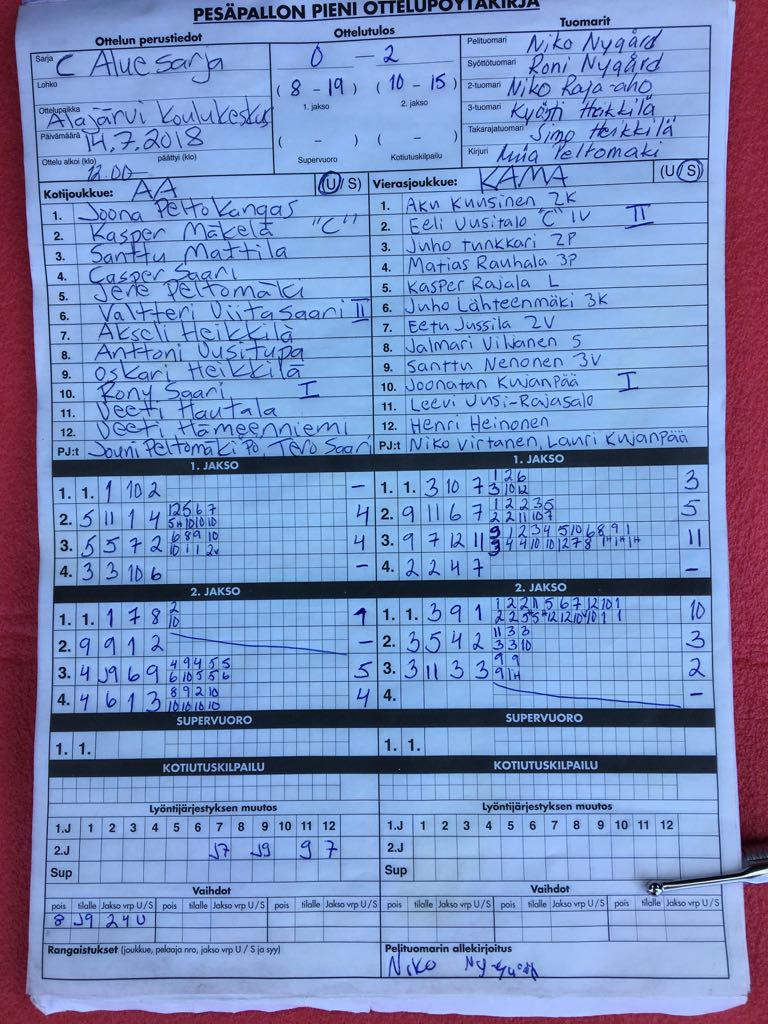 PESÄPALLON PIENI OTTELUPÖYTÄKIRJA
Ottelun perustiedot
Sarja C Aluesarja
Lohko
Ottelupaikka Alajärvi Koulukeskus
Päivämäärä 14.7.2018
Ottelu alkoi (klo) 12.00 päättyi (klo)
Ottelutulos
0 – 2
(8 – 19) (10 – 15)
1. jakso 2. jakso
( – ) ( – )
Supervuoro Kotiutuskilpailu
Tuomarit
Pelituomari Niko Nygård
Syöttötuomari Roni Nygård
2-tuomari Niko Raja-aho
3-tuomari Kyösti Heikkilä
Takarajatuomari Simo Heikkilä
Kirjuri Miia Peltomäki
Kotijoukkue: AA (U/S)
1. Joona Peltokangas
2. Kasper Mäkelä "C"
3. Santtu Mattila
4. Casper Saari
5. Jere Peltomäki
6. Valtteri Viitasaari II
7. Akseli Heikkilä
8. Anttoni Uusitupa
9. Oskari Heikkilä
10. Rony Saari I
11. Veeti Hautala
12. Veeti Hämeenniemi
PJ:t Jouni Peltomäki PO, Tero Saari
Vierasjoukkue: KAMA (U/S)
1. Aku Kuusinen 2K
2. Eeli Uusitalo "C" 1V II
3. Juho Tunkkari 2P
4. Matias Rauhala 3P
5. Kasper Rajala L
6. Juho Lähteenmäki 3K
7. Eetu Jussila 2V
8. Jalmari Viljanen S
9. Santtu Nenonen 3V
10. Joonatan Kujanpää I
11. Leevi Uusi-Rajasalo
12. Henri Heinonen
PJ:t Niko Virtanen, Lauri Kujanpää
1. JAKSO
1. 1. 1 10 2 –
2. 5 11 1 4 4
3. 5 5 7 2 4
4. 3 3 10 6 –
1. JAKSO
1. 1. 3 10 7 3
2. 9 11 6 7 5
3. 9 7 12 11 11
4. 2 2 4 7 –
2. JAKSO
1. 1. 1 7 8 2 10 1
2. 9 9 1 2 –
3. 4 J9 6 9 5
4. 4 6 1 3 4
2. JAKSO
1. 1. 3 9 1 10
2. 3 5 4 2 3
3. 3 11 3 3 2
4. –
SUPERVUORO
1. 1.
SUPERVUORO
1. 1.
KOTIUTUSKILPAILU
KOTIUTUSKILPAILU
Lyöntijärjestyksen muutos
1.J 1 2 3 4 5 6 7 8 9 10 11 12
2.J J7 J9 9 7
Sup
Lyöntijärjestyksen muutos
1.J 1 2 3 4 5 6 7 8 9 10 11 12
2.J
Sup
Vaihdot
pois tilalle Jakso vrp U/S pois tilalle Jakso vrp U/S pois tilalle Jakso vrp U/S
8 J9 2 4 U
Vaihdot
pois tilalle Jakso vrp U/S pois tilalle Jakso vrp U/S pois tilalle Jakso vrp U/S
Rangaistukset (joukkue, pelaaja nro, jakso vrp U/S ja syy)
Pelituomarin allekirjoitus
Niko Nygård